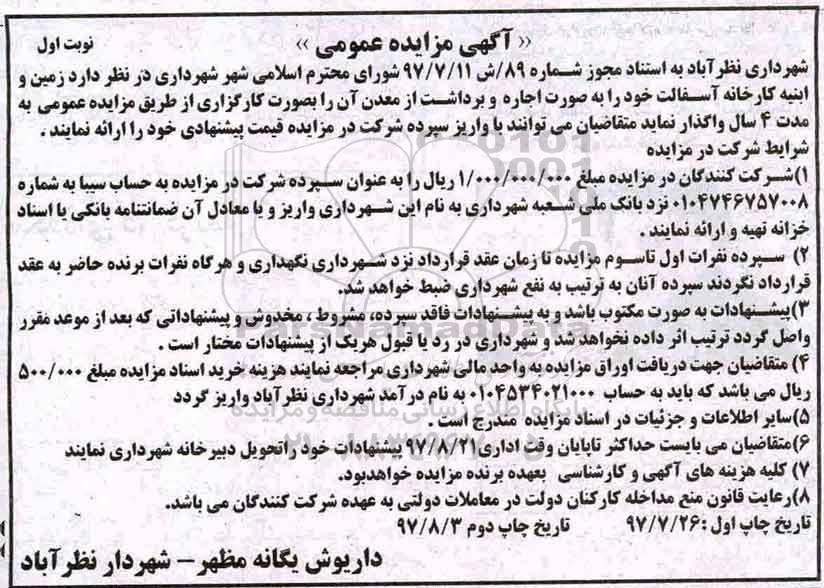 « آگهی مزایده عمومی »
نوبت اول
شهرداری نظرآباد به استناد مجوز شماره ۸۹/ش ۹۷/۷/۱۱ شورای محترم اسلامی شهر شهرداری در نظر دارد زمین و
ابنیه کارخانه آسفالت خود را به صورت اجاره و برداشت از معدن آن را بصورت کارگزاری از طریق مزایده عمومی به
مدت ۴ سال واگذار نماید متقاضیان می توانند با واریز سپرده شرکت در مزایده قیمت پیشنهادی خود را ارائه نمایند .
شرایط شرکت در مزایده
۱)شرکت کنندگان در مزایده مبلغ ۱/۰۰۰/۰۰۰/۰۰۰ ریال را به عنوان سپرده شرکت در مزایده به حساب سیبا به شماره
۰۱۰۴۷۴۶۷۵۷۰۰۸ نزد بانک ملی شعبه شهرداری به نام این شهرداری واریز و یا معادل آن ضمانتنامه بانکی یا اسناد
خزانه تهیه و ارائه نمایند .
۲) سپرده نفرات اول تاسوم مزایده تا زمان عقد قرارداد نزد شهرداری نگهداری و هرگاه نفرات برنده حاضر به عقد
قرارداد نگردند سپرده آنان به ترتیب به نفع شهرداری ضبط خواهد شد.
۳)پیشنهادات به صورت مکتوب باشد و به پیشنهادات فاقد سپرده، مشروط ، مخدوش و پیشنهاداتی که بعد از موعد مقرر
واصل گردد ترتیب اثر داده نخواهد شد و شهرداری در رد یا قبول هریک از پیشنهادات مختار است .
۴) متقاضیان جهت دریافت اوراق مزایده به واحد مالی شهرداری مراجعه نمایند هزینه خرید اسناد مزایده مبلغ ۵۰۰/۰۰۰
ریال می باشد که باید به حساب ۰۱۰۴۵۳۴۰۲۱۰۰۰ به نام درآمد شهرداری نظرآباد واریز گردد
۵)سایر اطلاعات و جزئیات در اسناد مزایده مندرج است .
۶)متقاضیان می بایست حداکثر تاپایان وقت اداری ۹۷/۸/۲۱ پیشنهادات خود راتحویل دبیرخانه شهرداری نمایند
۷) کلیه هزینه های آگهی و کارشناسی بعهده برنده مزایده خواهدبود.
۸)رعایت قانون منع مداخله کارکنان دولت در معاملات دولتی به عهده شرکت کنندگان می باشد.
تاریخ چاپ اول :۹۷/۷/۲۶ تاریخ چاپ دوم ۹۷/۸/۳
داریوش یگانه مظهر – شهردار نظرآباد
ParsNamadData
پایگاه اطلاع رسانی مناقصه و مزایده